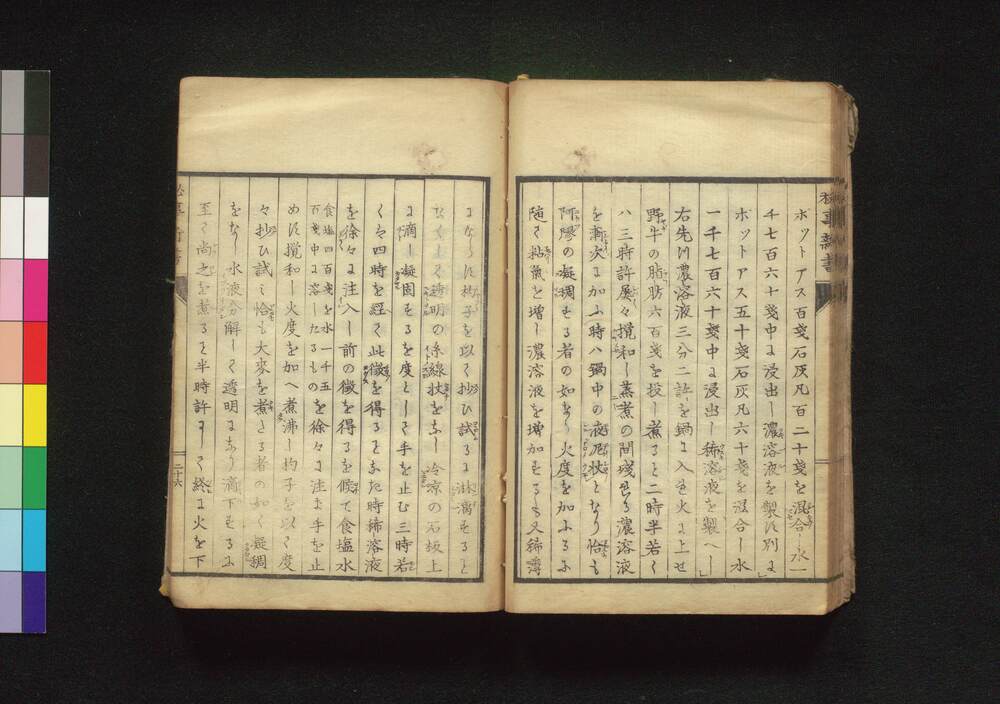 ポツトアス百戔石灰凡百二十戔を混合し水一
千七百六十戔中よ浸出し濃溶液を製は別よ
ホツトアス五十戔石灰凡六十戔を混合し水
一千七百六十戔中よ浸出し稀溶液を製へし
右先は濃溶液三分二許を鍋よ入色火よ上せ
野牛の脂肪六百戔を投し煮ると二時半若く
ハ三時許屡々攪和し蒸煮の間殘せる濃溶液
を漸次よ加ふ時ハ鍋中の液尼状となり恰も
阿膠の凝稠せる者の如し火度を加ふるふ
随て粘氣を増し濃溶液を増加する又稀薄
よ杓子を以く抄ひ試るよ淋滴するを
透明の係線状をふし冷涼の石板上
よ滴し凝固するを度として手を止む三時若
くハ四時を經て此徴を得るまた時稀溶液
を徐々よ注入し前の徴を得るを候て食塩水
食塩四百戔を水一千五
百戔中よ溶したるもの
を徐々よ注き手を止
めは攪和し火度を加へ煮沸し杓子を以て度
々抄ひ試ミ恰も大麥を煮る者の如く凝稠
をなし水液分解して透明よなり滴下するふ
至て尚之を煮るを半時許よして終よ火を下
二十六